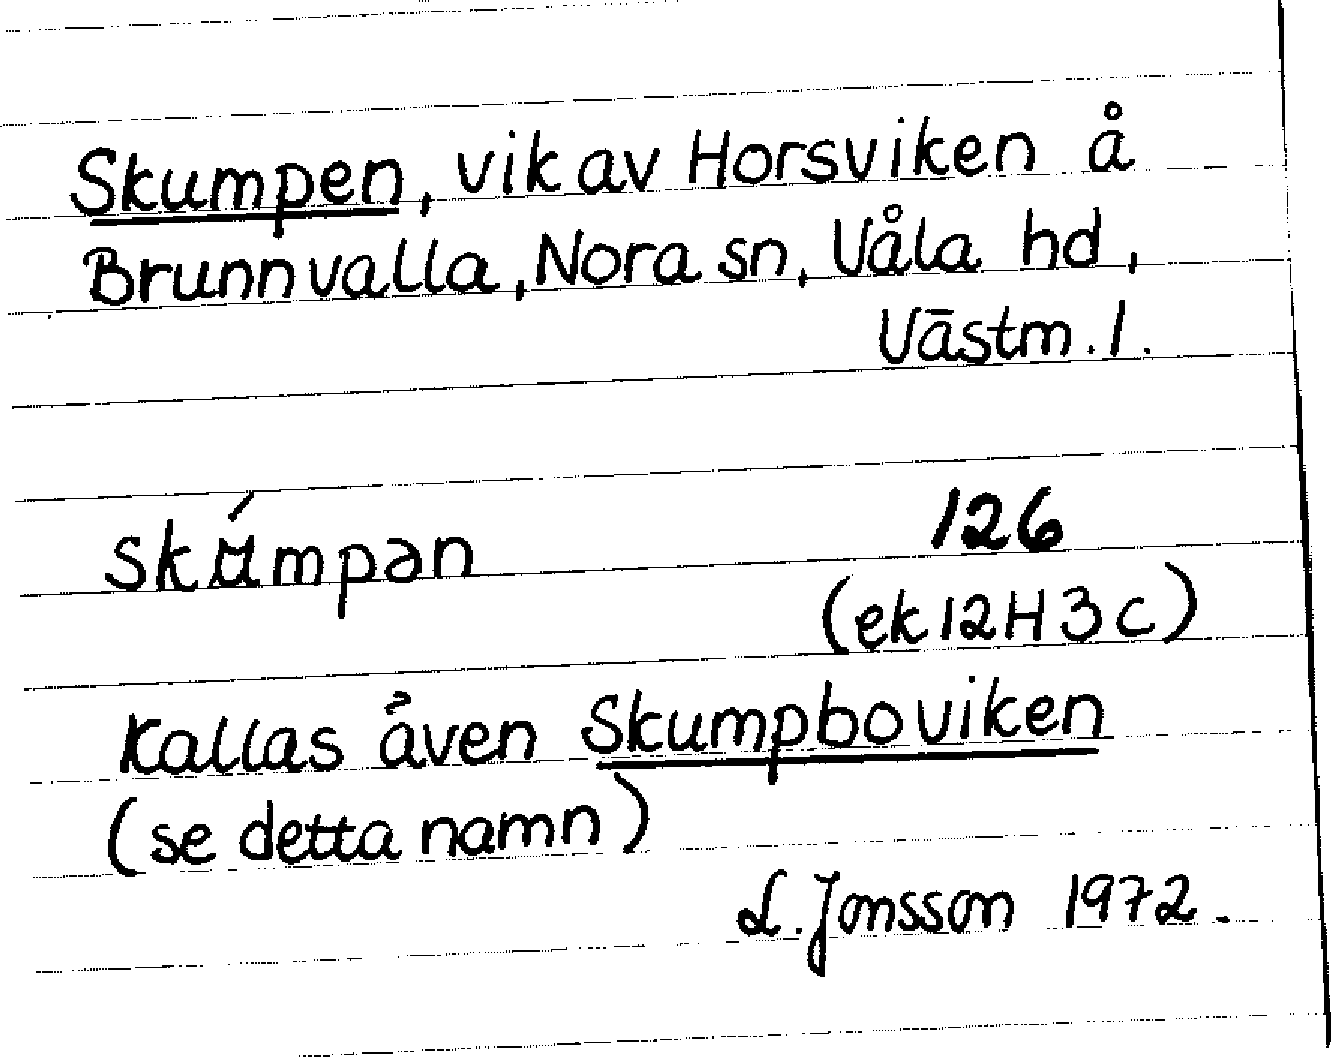 Skumpen, vik av Horsviken å
Brunnvalla, Nora sn, Våla hd,
Västm. l.
skʉ́mpən
126
(ek 12H 3c)
Kallas även Skumpboviken
(se detta namn)
L. Jonsson 1972.